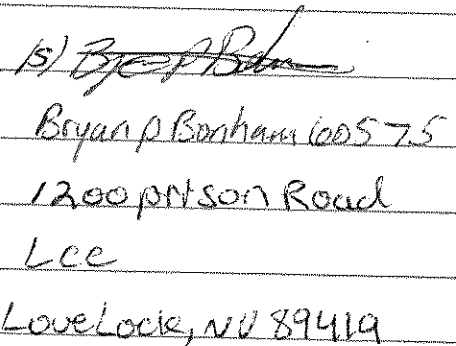 /s/ Bryan P Bonham
Bryan p Bonham 60575
1200 prison Road
Lcc
LoveLock, NV 89419